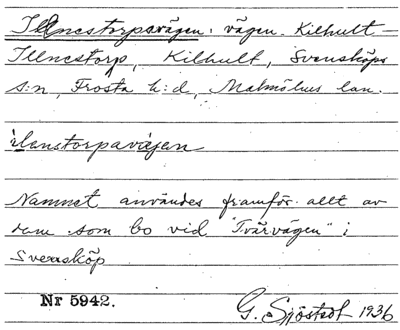 Illnestorpavägen: vägen Kilhult –
Illnestorp, Kilhult, Svensköps
s:n, Frosta h:d, Malmöhus län.
ilenstorpavägen
Namnet användes framför allt av
dem som bo vid "Tvärvägen" i
Svensköp
Nr 5942.
G. Sjöstedt 1936